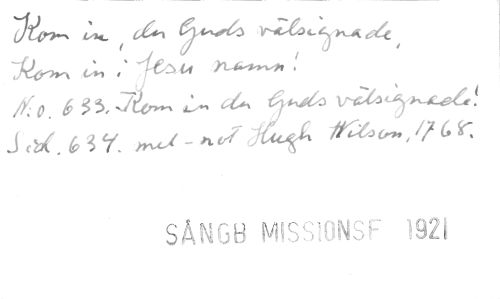 Kom in, du Guds välsignade,
Kom in i Jesu namn!
N:o. 633. Kom in du Guds välsignade!
Sid. 634. mel-not Hugh Wilson, 1768.
SÅNGB MISSIONSF 1921